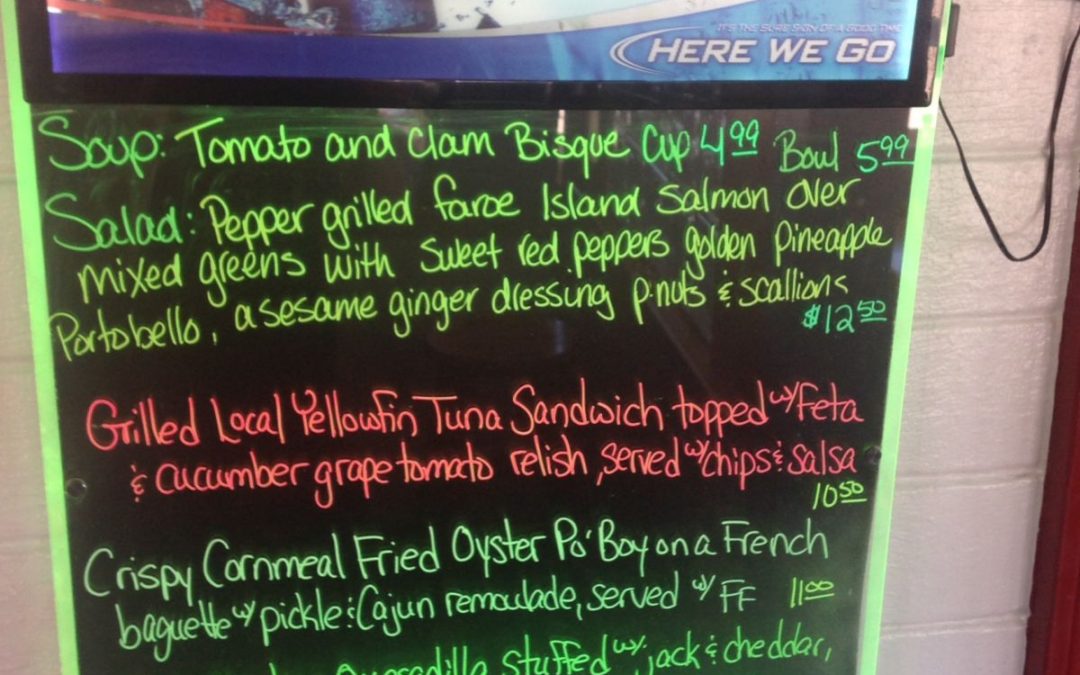 IT'S THE SURE SIGN OF A GOOD TIME
HERE WE GO
Soup: Tomato and Clam Bisque Cup 4.99 Bowl 5.99
Salad: Pepper grilled faroe Island Salmon over
mixed greens with sweet red peppers golden pineapple
Portobello, a sesame ginger dressing p-nuts & scallions
$12.50
Grilled Local Yellowfin Tuna Sandwich topped w/ feta
& cucumber grape tomato relish, served w/ chips & salsa
10.50
Crispy Cornmeal Fried Oyster Po' Boy on a French
baguette w/ pickle & Cajun remoulade, served w/ FF 11.00
Quesadilla stuffed w/ jack & cheddar,